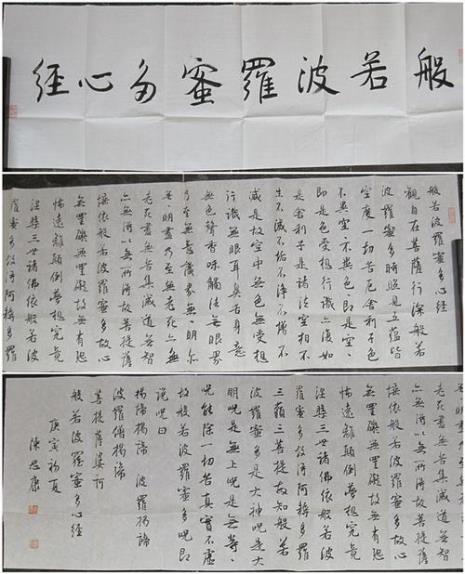 般若波羅蜜多心經
般若波羅蜜多心經
觀自在菩薩行深般若
波羅蜜多時照見五蘊皆
空度一切苦厄舍利子色
不異空々不異色々即是空々
即是色受想行識亦復如
是舍利子是諸法空相不
生不滅不垢不淨不增不
減是故空中無色無受想
行識無眼耳鼻舌身意
無色聲香味觸法無眼界
乃至無意識界無無明亦
無無明盡乃至無老死亦無
老死盡無苦集滅道無智
亦無得以無所得故菩提薩
埵依般若波羅蜜多故心
無罣礙無罣礙故無有恐
怖遠離顛倒夢想究竟
涅槃三世諸佛依般若波
羅蜜多故得阿耨多羅
老死盡無苦集滅道無智
亦無得以無所得故菩提薩
埵依般若波羅蜜多故心
無罣礙無罣礙故無有恐
怖遠離顛倒夢想究竟
涅槃三世諸佛依般若波
羅蜜多故得阿耨多羅
三藐三菩提故知般若
波羅蜜多是大神咒是大
明咒是無上咒是無等々
咒能除一切苦真實不虛
故般若波羅蜜多咒即
說咒曰
揭諦揭諦 波羅揭諦
波羅僧揭諦
菩提薩婆訶
般若波羅蜜多心經
庚寅初夏
陳忠康